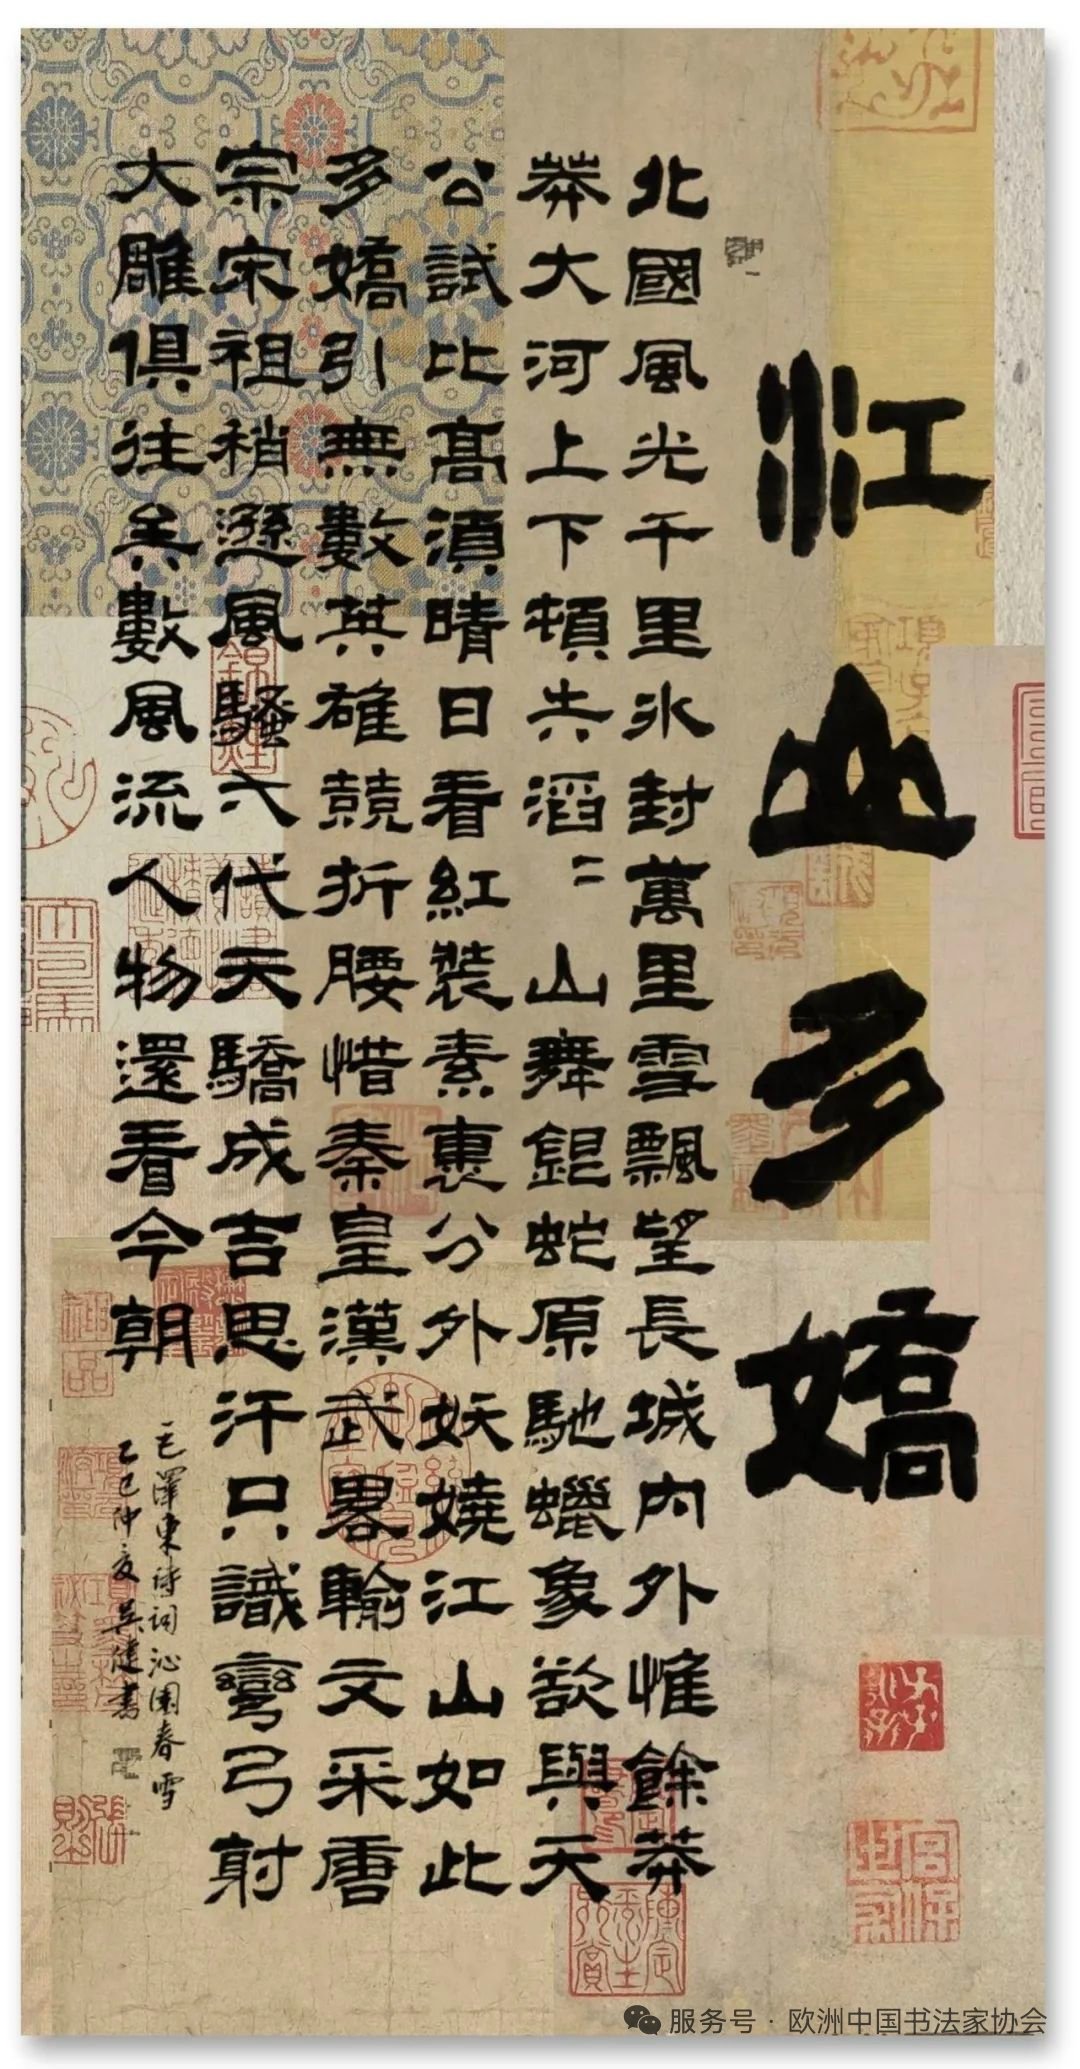 江山多嬌
北國風光千里冰封萬里雪飄望長城內外惟餘莽
莽大河上下頓失滔〻山舞銀蛇原馳蠟象欲與天
公試比髙須晴日看紅裝素裹分外妖嬈江山如此
多嬌引無數英雄競折腰惜秦皇漢武畧輸文采唐
宗宋祖稍遜風騷六代天驕成吉思汗只識彎弓射
大雕俱往矣數風流人物還看今朝
毛澤東詩詞沁園春雪
乙巳仲夏吳健書
服务号·欧洲中国书法家协会